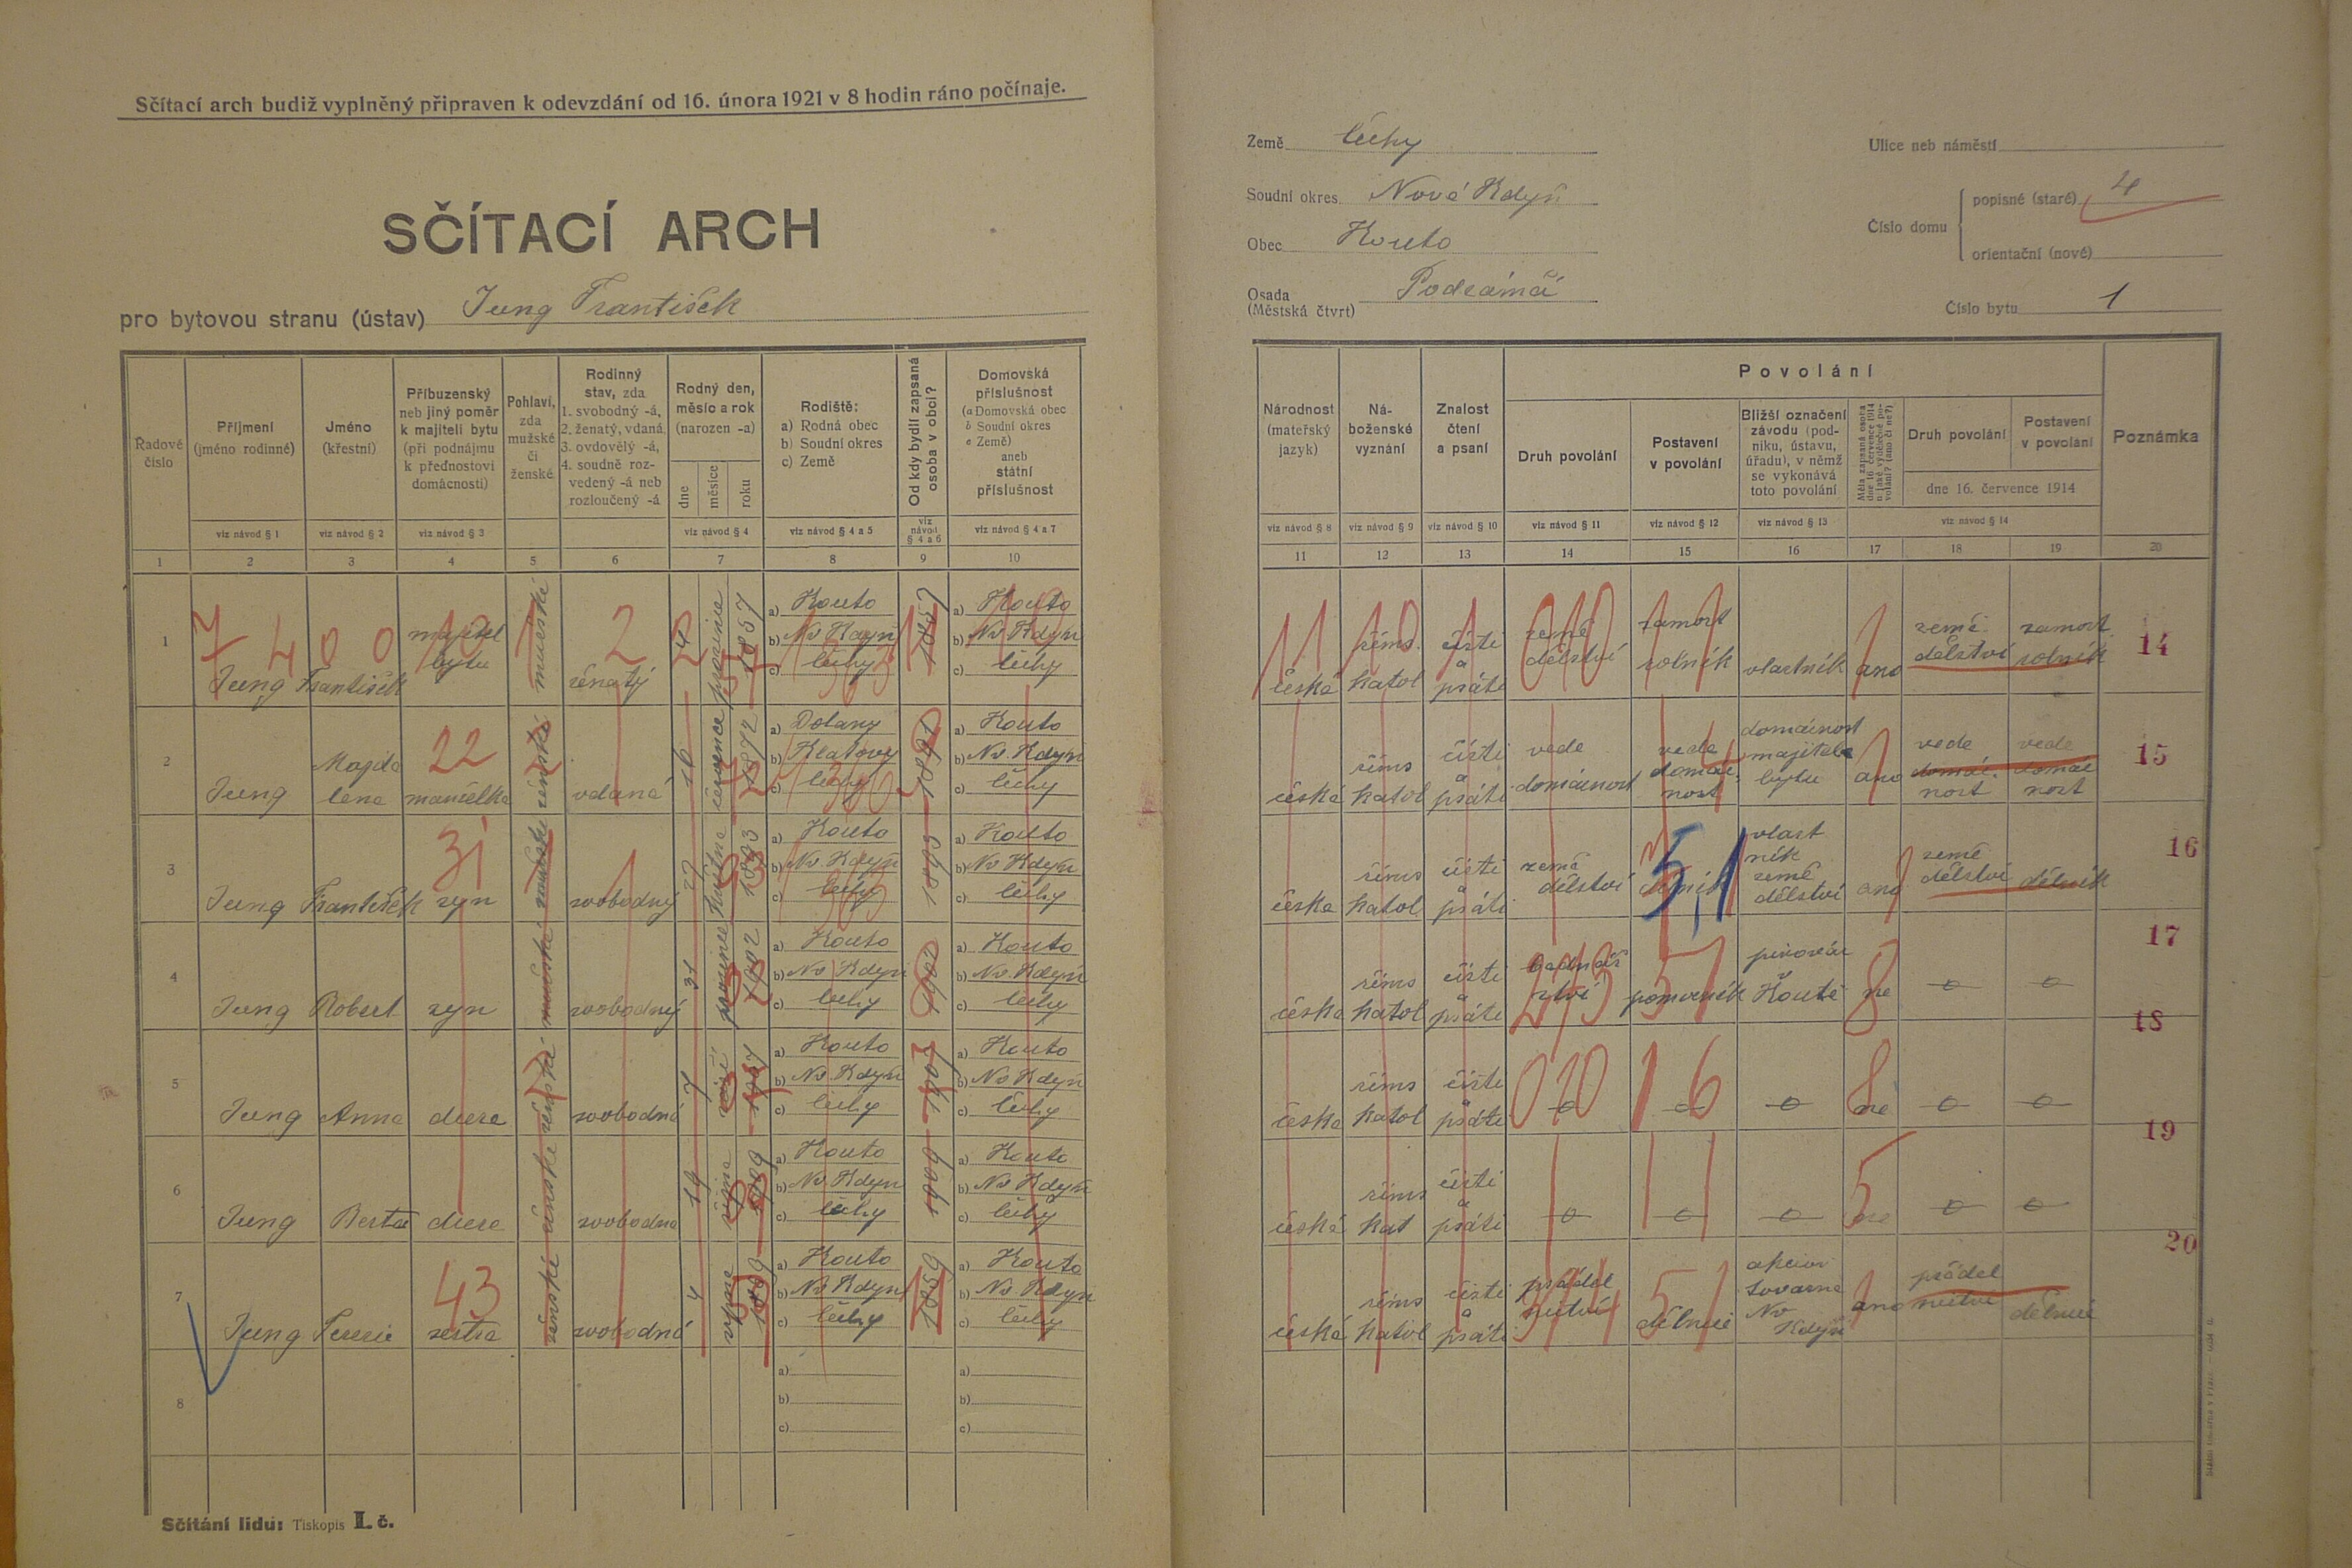 Sčítací arch budiž vyplněný připraven k odevzdání od 16. února 1921 v 8 hodin ráno počínaje.
SČÍTACÍ ARCH
pro bytovou stranu (ústav) Jung František
Řadové číslo
Příjmení (jméno rodinné)
Jméno (křestní)
Příbuzenský neb jiný poměr k majiteli bytu (při podnájmu k přednostovi domácnosti)
Pohlaví, zda mužské či ženské
Rodinný stav, zda 1. svobodný -á, 2. ženatý, vdaná 3. ovdovělý -á, 4. soudně rozvedený -á neb rozloučený -á
Rodný den, měsíc a rok (narozen -a)
dne měsíce roku
Rodiště: a) Rodná obec b) Soudní okres c) Země
Od kdy bydlí zapsaná osoba v obci?
Domovská příslušnost (a Domovská obec b Soudní okres c Země) aneb státní příslušnost
viz návod § 1 viz návod § 2 viz návod § 3 viz návod § 4 viz návod § 4 a 5 viz návod § 4 a 6 viz návod § 4 a 7
1 2 3 4 5 6 7 8 9 10
1 Jung František majitel bytu mužské ženatý 4 prosince 1857 a) Kouto b) No Kdyň c) Čechy 1857 a) Kouto b) No Kdyň c) Čechy
2 Jung Magdalena manželka ženské vdaná 16 července 1872 a) Dolany b) Klatovy c) Čechy 1891 a) Kouto b) No Kdyň c) Čechy
3 Jung František syn mužské svobodný 27 května a) Kouto b) No Kdyň c) Čechy a) Kouto b) No Kdyň c) Čechy
4 Jung Robert syn mužské svobodný 31 prosince 1902 a) Kouto b) No Kdyň c) Čechy 1902 a) Kouto b) No Kdyň c) Čechy
5 Jung Anna dcera ženské svobodná 7 září 1907 a) Kouto b) No Kdyň c) Čechy 1907 a) Kouto b) No Kdyň c) Čechy
6 Jung Berta dcera ženské svobodna 19 října 1909 a) Kouto b) No Kdyň c) Čechy 1909 a) Kouto b) No Kdyň c) Čechy
7 Jung Terezie sestra ženské svobodná 4 srpna a) Kouto b) No Kdyň c) Čechy 1859 a) Kouto b) No Kdyň c) Čechy
8 a) b) c) a) b) c)
Sčítání lidu: Tiskopis I. č.
Země Čechy
Soudní okres Nová Kdyň
Obec Kouto
Osada (Městská čtvrt)
Ulice neb náměstí
Číslo domu
popisné (staré) 4
orientační (nové)
Číslo bytu 1
Národnost (mateřský jazyk)
Náboženské vyznání
Znalost čtení a psaní
Povolání
Druh povolání
Postavení v povolání
Bližší označení závodu (podniku, ústavu, úřadu), v němž se vykonává toto povolání
Měla zapsaná osoba dne 16. července 1914 nějaké výdělečné povolání? (ano či ne?)
Druh povolání
Postavení v povolání
dne 16. července 1914
Poznámka
viz návod § 8 viz návod § 9 viz návod § 10 viz návod § 11 viz návod § 12 viz návod § 13 viz návod § 14
11 12 13 14 15 16 17 18 19 20
česká říms. katol čísti a psáti zemědělství samost rolník vlastník ano zemědělství samost. rolník 14
česka říms katol čísti a psáti vede domácnost vede domácnost domácnost majitele bytu ano vede domácnost vede domácnost 15
česka říms katol čísti a psáti zemědělství dělník vlastník zemědělství ano zemědělství dělník 16
česka říms katol čísti a psáti bednářství pomocník pivovár Koutě ne 17
česka říms katol čísti a psáti ne 18
česká říms kat čísti a psáti ne 19
česká říms katol čísti a psáti dělnice akciov tovarna No Kdyň ano dělnice 20